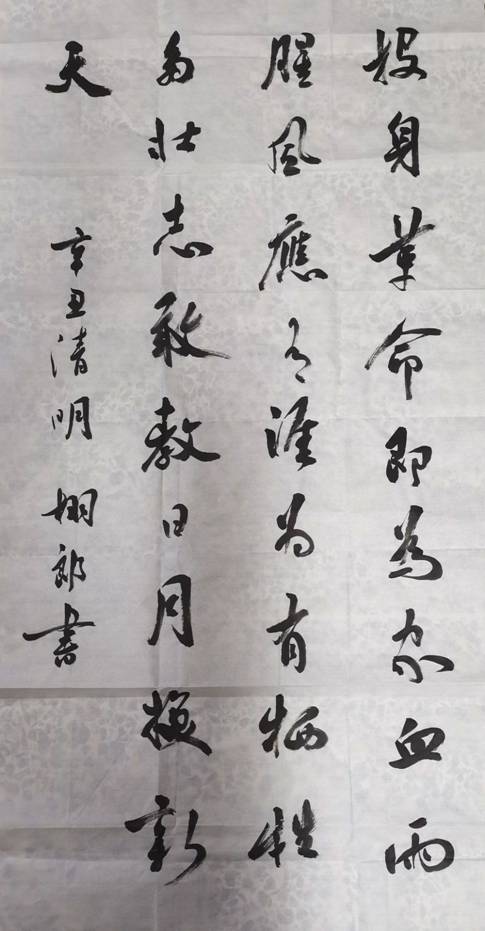 投身革命即為家血雨
腥風應有涯為有牺牲
多壮志敢教日月換新
天
辛丑清明 翊郎書